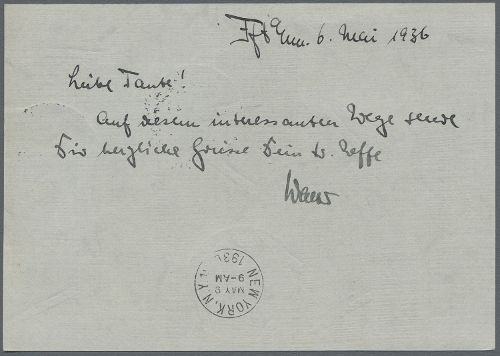 Fft a/m. 6. Mai 1936
Liebe Tante!
Auf diesem interessanten Wege sende
Dir herzliche Grüsse Dein tr. Neffe
NEW YORK, N.Y.
MAY 9
9-AM
1936